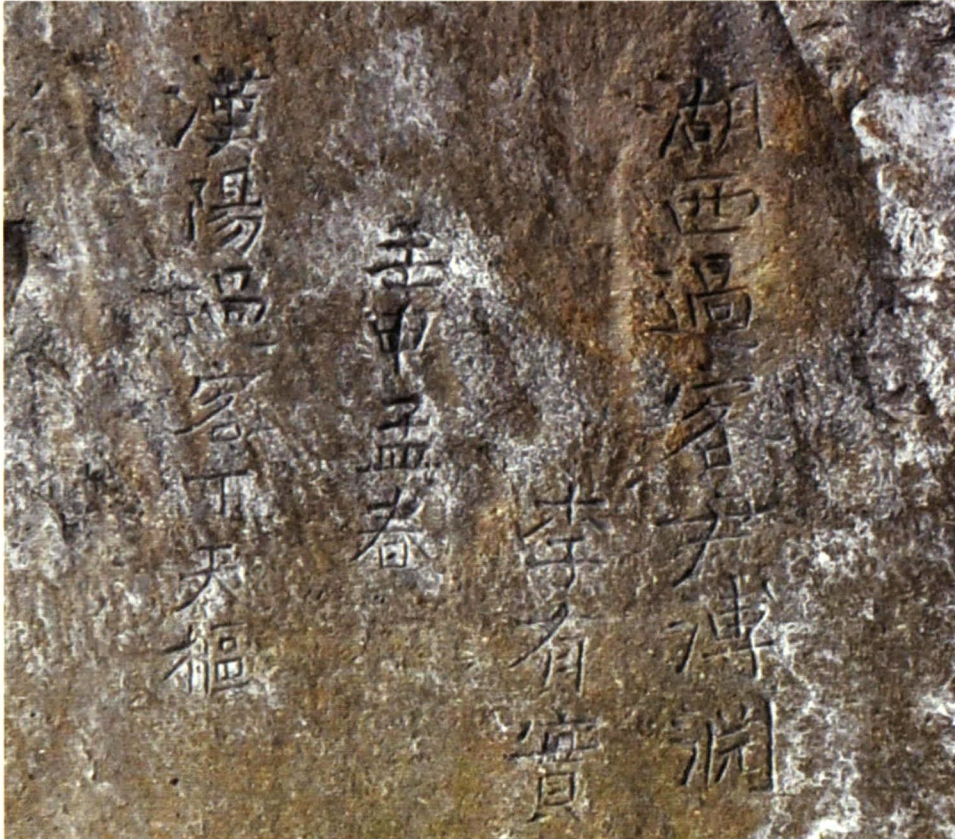 湖西過客尹溥淵
李有實
壬申孟春
漢陽過客天樞